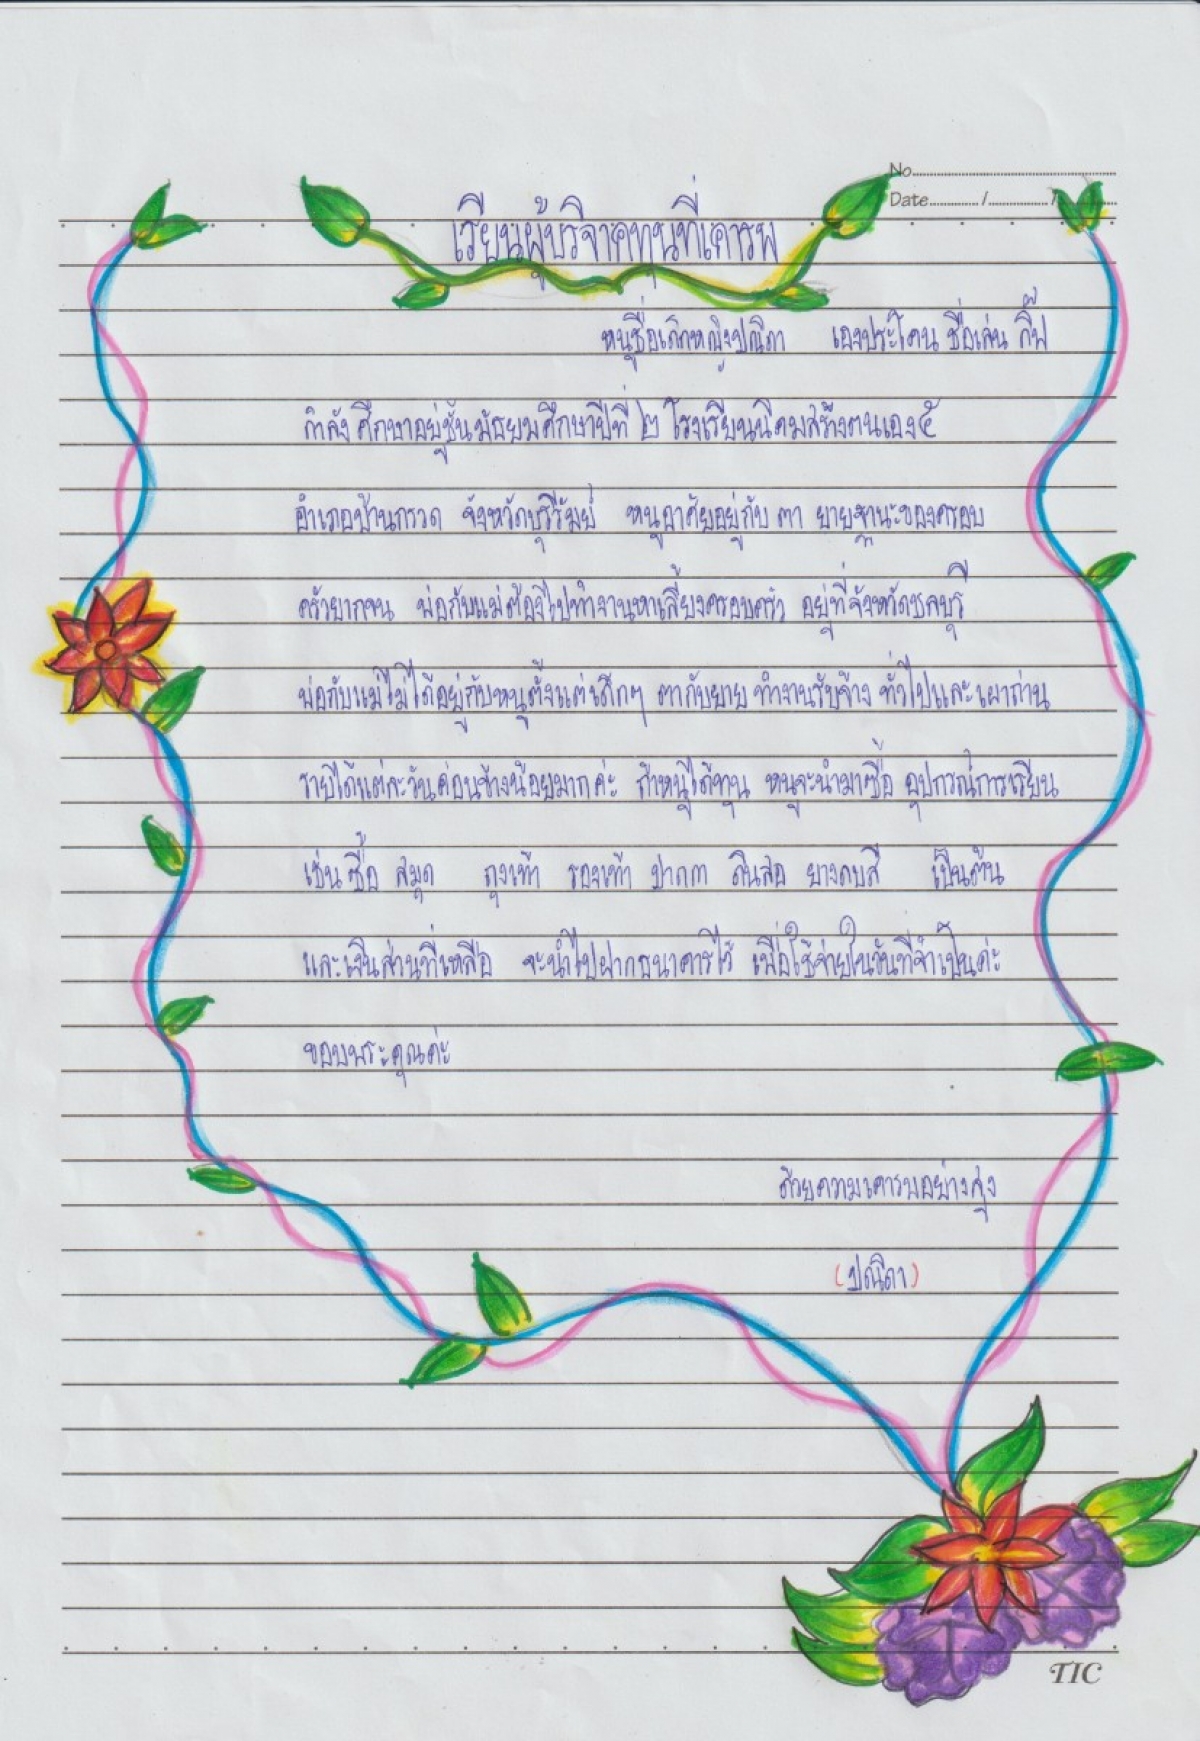 No.
Date / /
เรียนผู้บริจาคทุนที่เคารพ
หนูชื่อเด็กหญิงปณิดา เองประโคน ชื่อเล่น กิ๊ฟ
กำลังศึกษาอยู่ชั้นมัธยมศึกษาปีที่ ๒ โรงเรียนนิคมสร้างตนเอง๕
อำเภอบ้านกรวด จังหวัดบุรีรัมย์ หนูอาศัยอยู่กับ ตา ยายฐานะของครอบ
ครัวยากจน พ่อกับแม่ต้องไปทำงานหาเลี้ยงครอบครัว อยู่ที่จังหวัดชลบุรี
พ่อกับแม่ไม่ได้อยู่กับหนูตั้งแต่เด็กๆ ตากับยาย ทำงานรับจ้าง ทั่วไปและเผาถ่าน
รายได้แต่ละวันค่อนข้างน้อยมากค่ะ ถ้าหนูได้ทุน หนูจะนำมาซื้อ อุปกรณ์การเรียน
เช่น ซื้อ สมุด ถุงเท้า รองเท้า ปากกา ดินสอ ยางลบสี เป็นต้น
และเงินส่วนที่เหลือ จะนำไปฝากธนาคารไว้ เพื่อใช้จ่ายในวันที่จำเป็นค่ะ
ขอบพระคุณค่ะ
ด้วยความเคารพอย่างสูง
(ปณิดา)
TIC